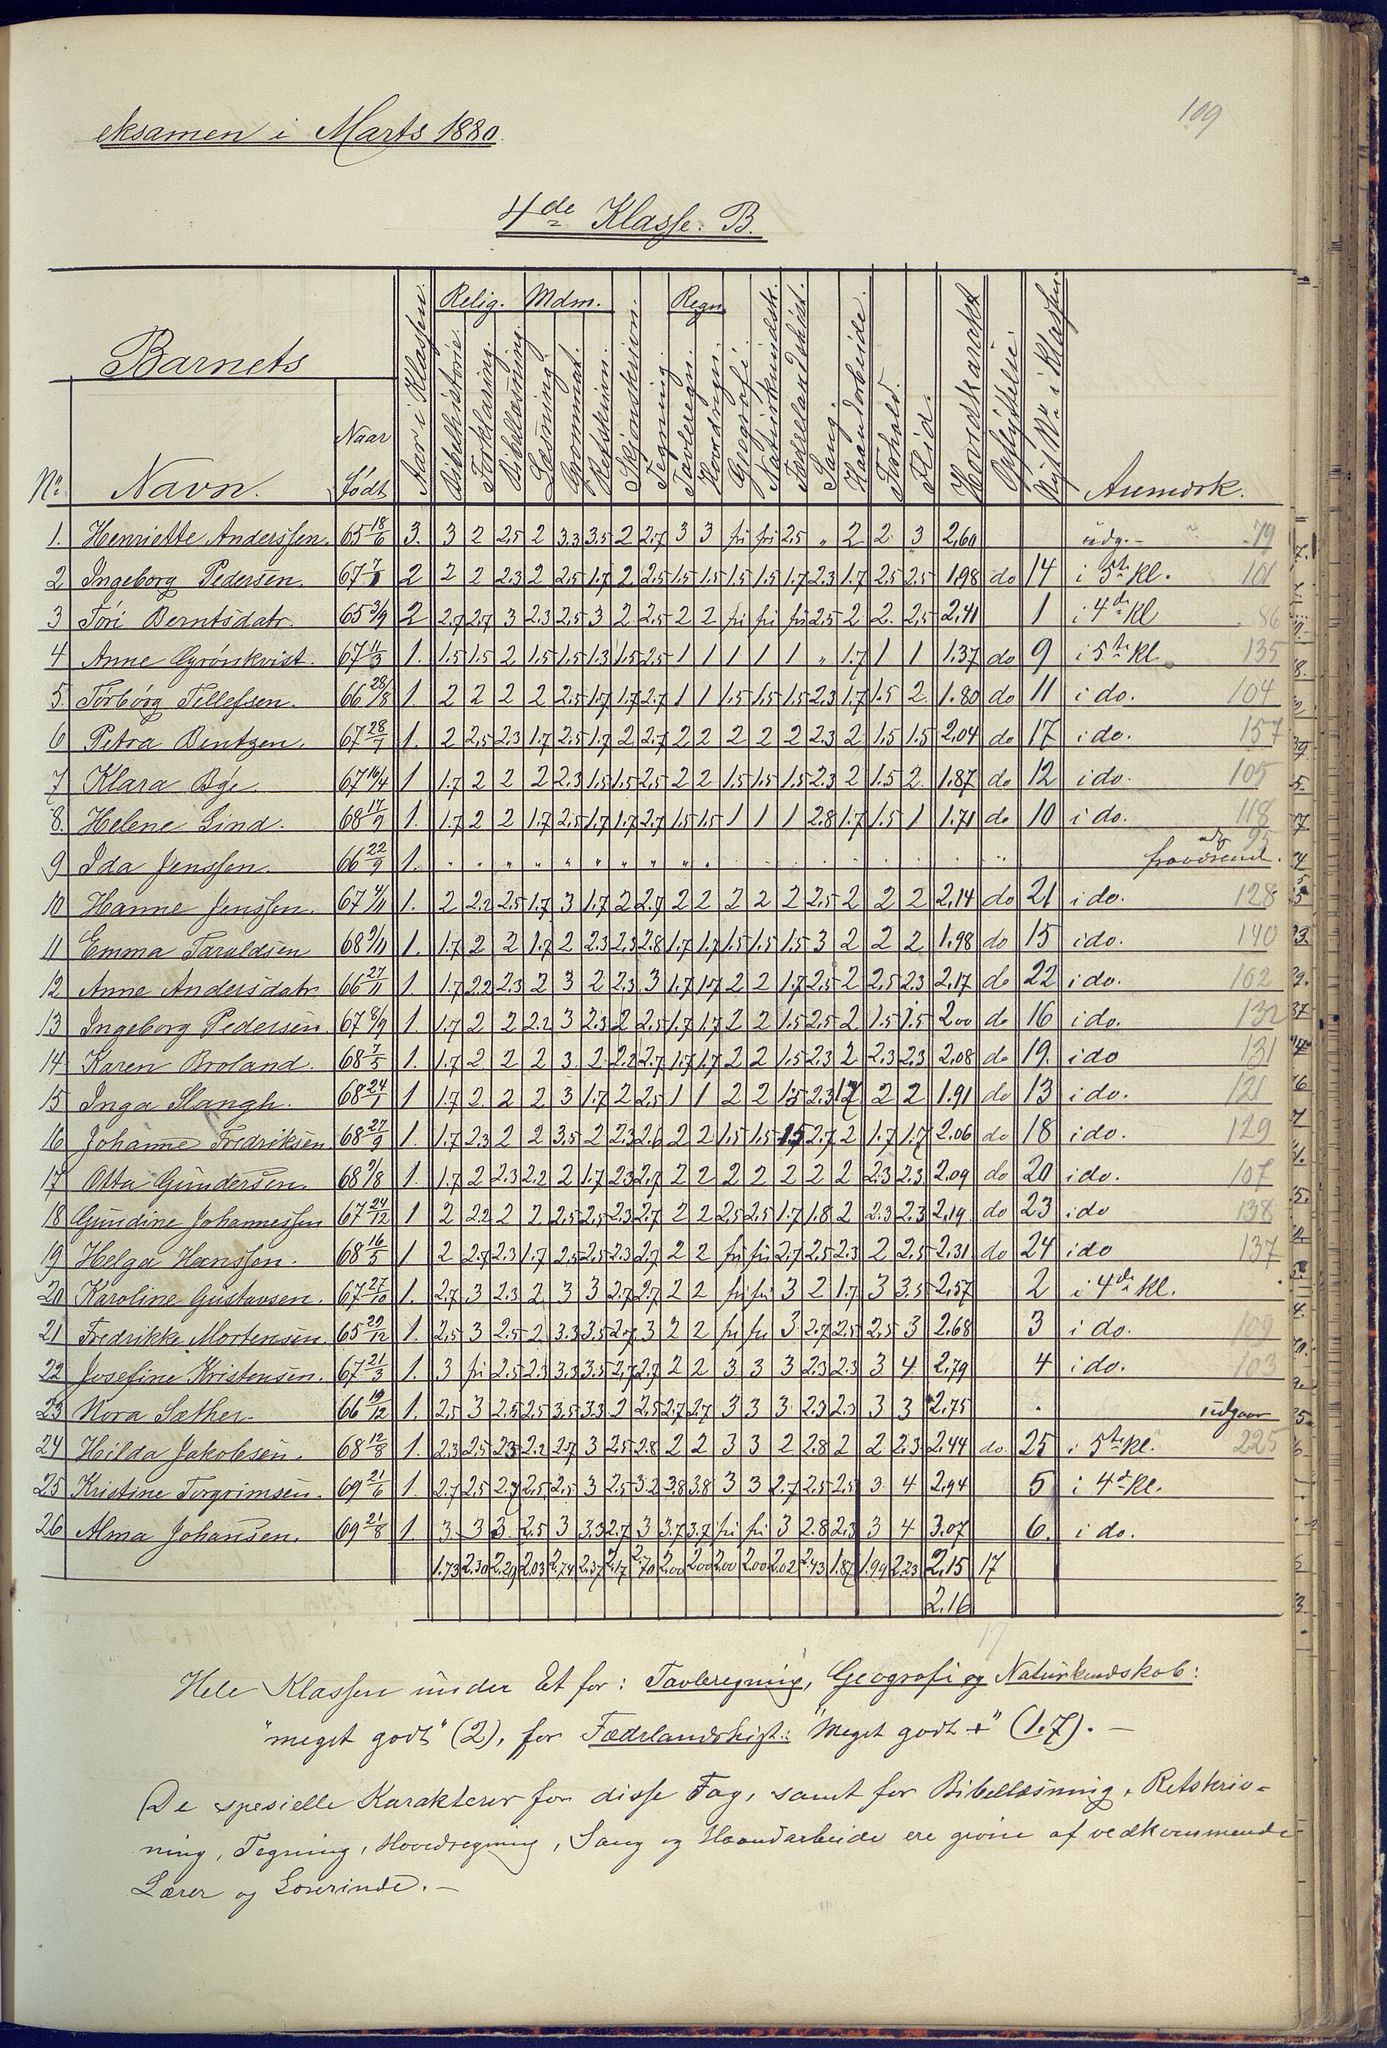 109
eksamen i Marts 1880.
4de Klasse. B.
Barnets
Relig. Mdm. Regn.
No. Navn. Naar født Aar i Klassen. Bibelhistorie. Forklaring. Bibellæsning. Læsning Grammat. Retskrivn. Skjønskrivn. Tegning Tavleregn. Hovdregn. Geografi. Naturkundsk. Fædrelandshist. Sang. Haandarbeide. Forhold. Flid. Hovedkarakt Opflyttelse. Nyt No i Klassen. Anmærk.
1. Henriette Anderssen. 65 18/6 3. 3 2 2.5 2 3.3 3.5 2 2.7 3 3 fri fri 2.5 " 2 2. 3 2,60 udg. - 79
2 Ingeborg Pedersen. 67 2 2 2 2.3 2 2.5 1.7 2 2.5 1.5 1.5 1.5 1.5 1.7 2.3 1.7 2.5 2.5 1.98 do 14 i 5te Kl. 101
3 Tori Berntsdatr. 65 3/9 2 2.7 2.7 3 2.3 2.5 3 2 2.5 2 2 fri fri fri 2.5 2 2. 2.5 2.41 1 i 4de Kl 86
4 Anne Grønkvist. 67 11/3 1. 1.5 1.5 2 1.5 1.5 1.3 1.5 2.5 1 1 1 1 1 " 1.7 1 1 1.37 do 9 i 5te Kl. 135
5. Torborg Tellefsen. 66 28/8 1. 2 2 2 2 2.5 1.7 1.7 2.7 1 1 1.5 1.5 1.5 2.3 1.7 1.5 2 1.80 do 11 i do. 104
6 Petra Bentzen. 67 28/7 1. 2 2.5 2.3 1.7 2.5 1.7 2 2.7 2 2 2 2 2 2.3 2 1.5 1.5 2,04 do 17 i do. 157
7 Klara Bøe. 67 16/4 1 1.7 2 2 2 2.3 1.5 1.5 2.5 2 2 1.5 1.5 1.5 2.3 2 1.5 2. 1.87 do 12 i do. 105
8. Helene Lind. 68 17/9 1. 1.7 2 2 1.7 2.5 1.7 1.7 2.7 1.5 1.5 1 1 1 2.8 1.7 1.5 1 1.71 do 10 i do. 118
9 Ida Jenssen. 66 22/9 1. " " " " " " " " " " udg 95 fraværend.
10 Hanne Jenssen. 67 4/11 1. 2 2.2 2.5 1.7 3 1.7 2 2.7 2 2 2 2 2 2.5 2 2 2 2,14 do 21 i do. 128
11 Emma Taraldsen 68 9/11 1. 1.7 2 2 1.7 2 2.3 2.3 2.8 1.7 1.7 1.5 1.5 1.5 3 2 2 2 1.98 do 15 i do. 140
12 Anne Andersdatr 66 27/11 1. 1.7 2.2 2.3 2 3 2 2.3 3 1.7 1.7 2 2 1.7 2.5 2 2.5 2.3 2,17 do 22 i do. 102
13 Ingeborg Pedersen. 67 8/9 1. 1.7 2 2 2.2 3 2.3 2 2.5 1.7 1.7 2 2 1.5 2.5 2 1.5 1.5 2.00 do 16 i do. 132
14 Karen Broland. 68 7/5 1. 1.7 2 2 2 3. 2. 2.2 2.7 1.7 1.7 2 2 1.5 2.3 2 2.3 2.3 2.08 do 19. i do 131
15 Inga Stangh. 68 24/1 1 1.7 2. 2 2 3 1.7 2 2.5 1 1 2 2 1.5 2.3 1.7 2 2 1.91 do 13 i do. 121
16 Johanne Fredriksen 68 27/9 1. 1.7 2.3 2 2 3.5 2 2.3 2.6 2 2 1.5 1.5 1.5 2.7 2 1.7 1.7 2.06 do 18 i do. 129
17 Otta Gundersen. 68 9/8 1. 1.7 2 2.3 2.2 2 1.7 2.3 2.7 2 2 2 2 2 2 2 2.3 2.3 2.09 do 20 i do. 107
18 Gundine Johannessen 67 24/12 1 2 2.2 2 2 2.5 2.5 2.3 2.7 2 2 2.5 2.5 1.7 1.8 2 2.3 2.3 2,19. do 23 i do 138
19 Helga Hanssen. 68 16/5 1 2 2.7 2.3 1.7 2.5 2.5 2.3 2.7 2 2 fri fri 2.7 2.5 2.3 2 2.5 2,31 do 24 i do 137
20 Karoline Gustavsen. 67 27/10 1. 2.7 3 2.3 2 3 3 2.7 2.7 2 2 fri fri 3 2 1.7 3 3.5 2,57 2 i 4de Kl.
21 Fredrikke Mortensen. 65 29/12 1. 2.5 3 2.5 2 3.3 3.5 2.7 3 2 2 fri fri 3 2.7 2.5 2.5 3 2.68 3 i do. 109
22 Josefine Kristensen. 67 21/3 1. 3 fri 2.5 2.3 3.3 3.5 2.7 2.7 2 2 3 3 3 2.3 2.3 3 4. 2.79 4 i do. 103
23 Nora Sæther. 66 19/12 1. 2.5 3 2.5 2.5 3.5 3.3 2 2.5 2.7 2.7 3 3 3. 2.3 2.3 3 3 2.75 udgaar
24 Hilda Jakobsen. 68 12/8 1. 2.3 2.5 2.3 2.2 2.7 3 2.5 2.8 2 2 3 3 2 2.8 2 2 2.3 2.44 do. 25 i 5te Kl. 225
25 Kristine Torgrimsen. 69 21/6 1. 2.7 2.5 2.7 2.5 2.5 3 2.5 3.2 3.8 3.8 3 3 2.7 2.5 2.5 3. 4 2,94 5 i 4de Kl.
26 Alma Johansen. 69 21/8 1. 3. 3 3. 2.5 3 3.3 2.7 3 3.7 3.7 fri fri 3 2.8 2.3 3 4 3.07 6. i do.
1.73 2.30 2.29 2.03 2.74 2.37 2.17 2.70 2.00 2.00 2.00 2.00 2.02 2.43 1.87 1.99 2.23 2,15 17
2.16
Hele Klassen under Et for: Tavleregning, Geografi og Naturkundskab:
"meget godt" (2), for Fædrelandshist.: "Meget godt +" (1.7). —
De spesielle Karakterer for disse Fag, samt for Bibellæsning, Retskriv-
ning, Tegning, Hovedregning, Sang og Haandarbeide ere givne af vedkommende
Lærer og Lærerinde. —